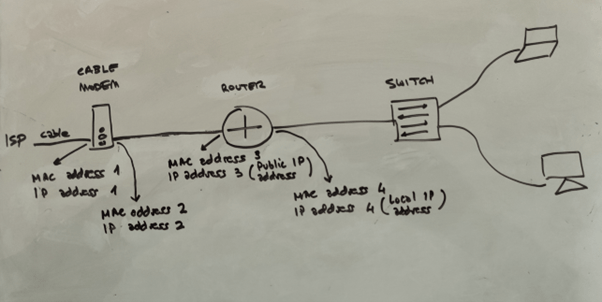 CABLE
MODEM
ROUTER
SWITCH
ISP cable
MAC address 1
IP address 1
MAC address 2
IP address 2
MAC address 3
IP address 3 (Public IP address)
MAC address 4
IP address 4 (Local IP address)